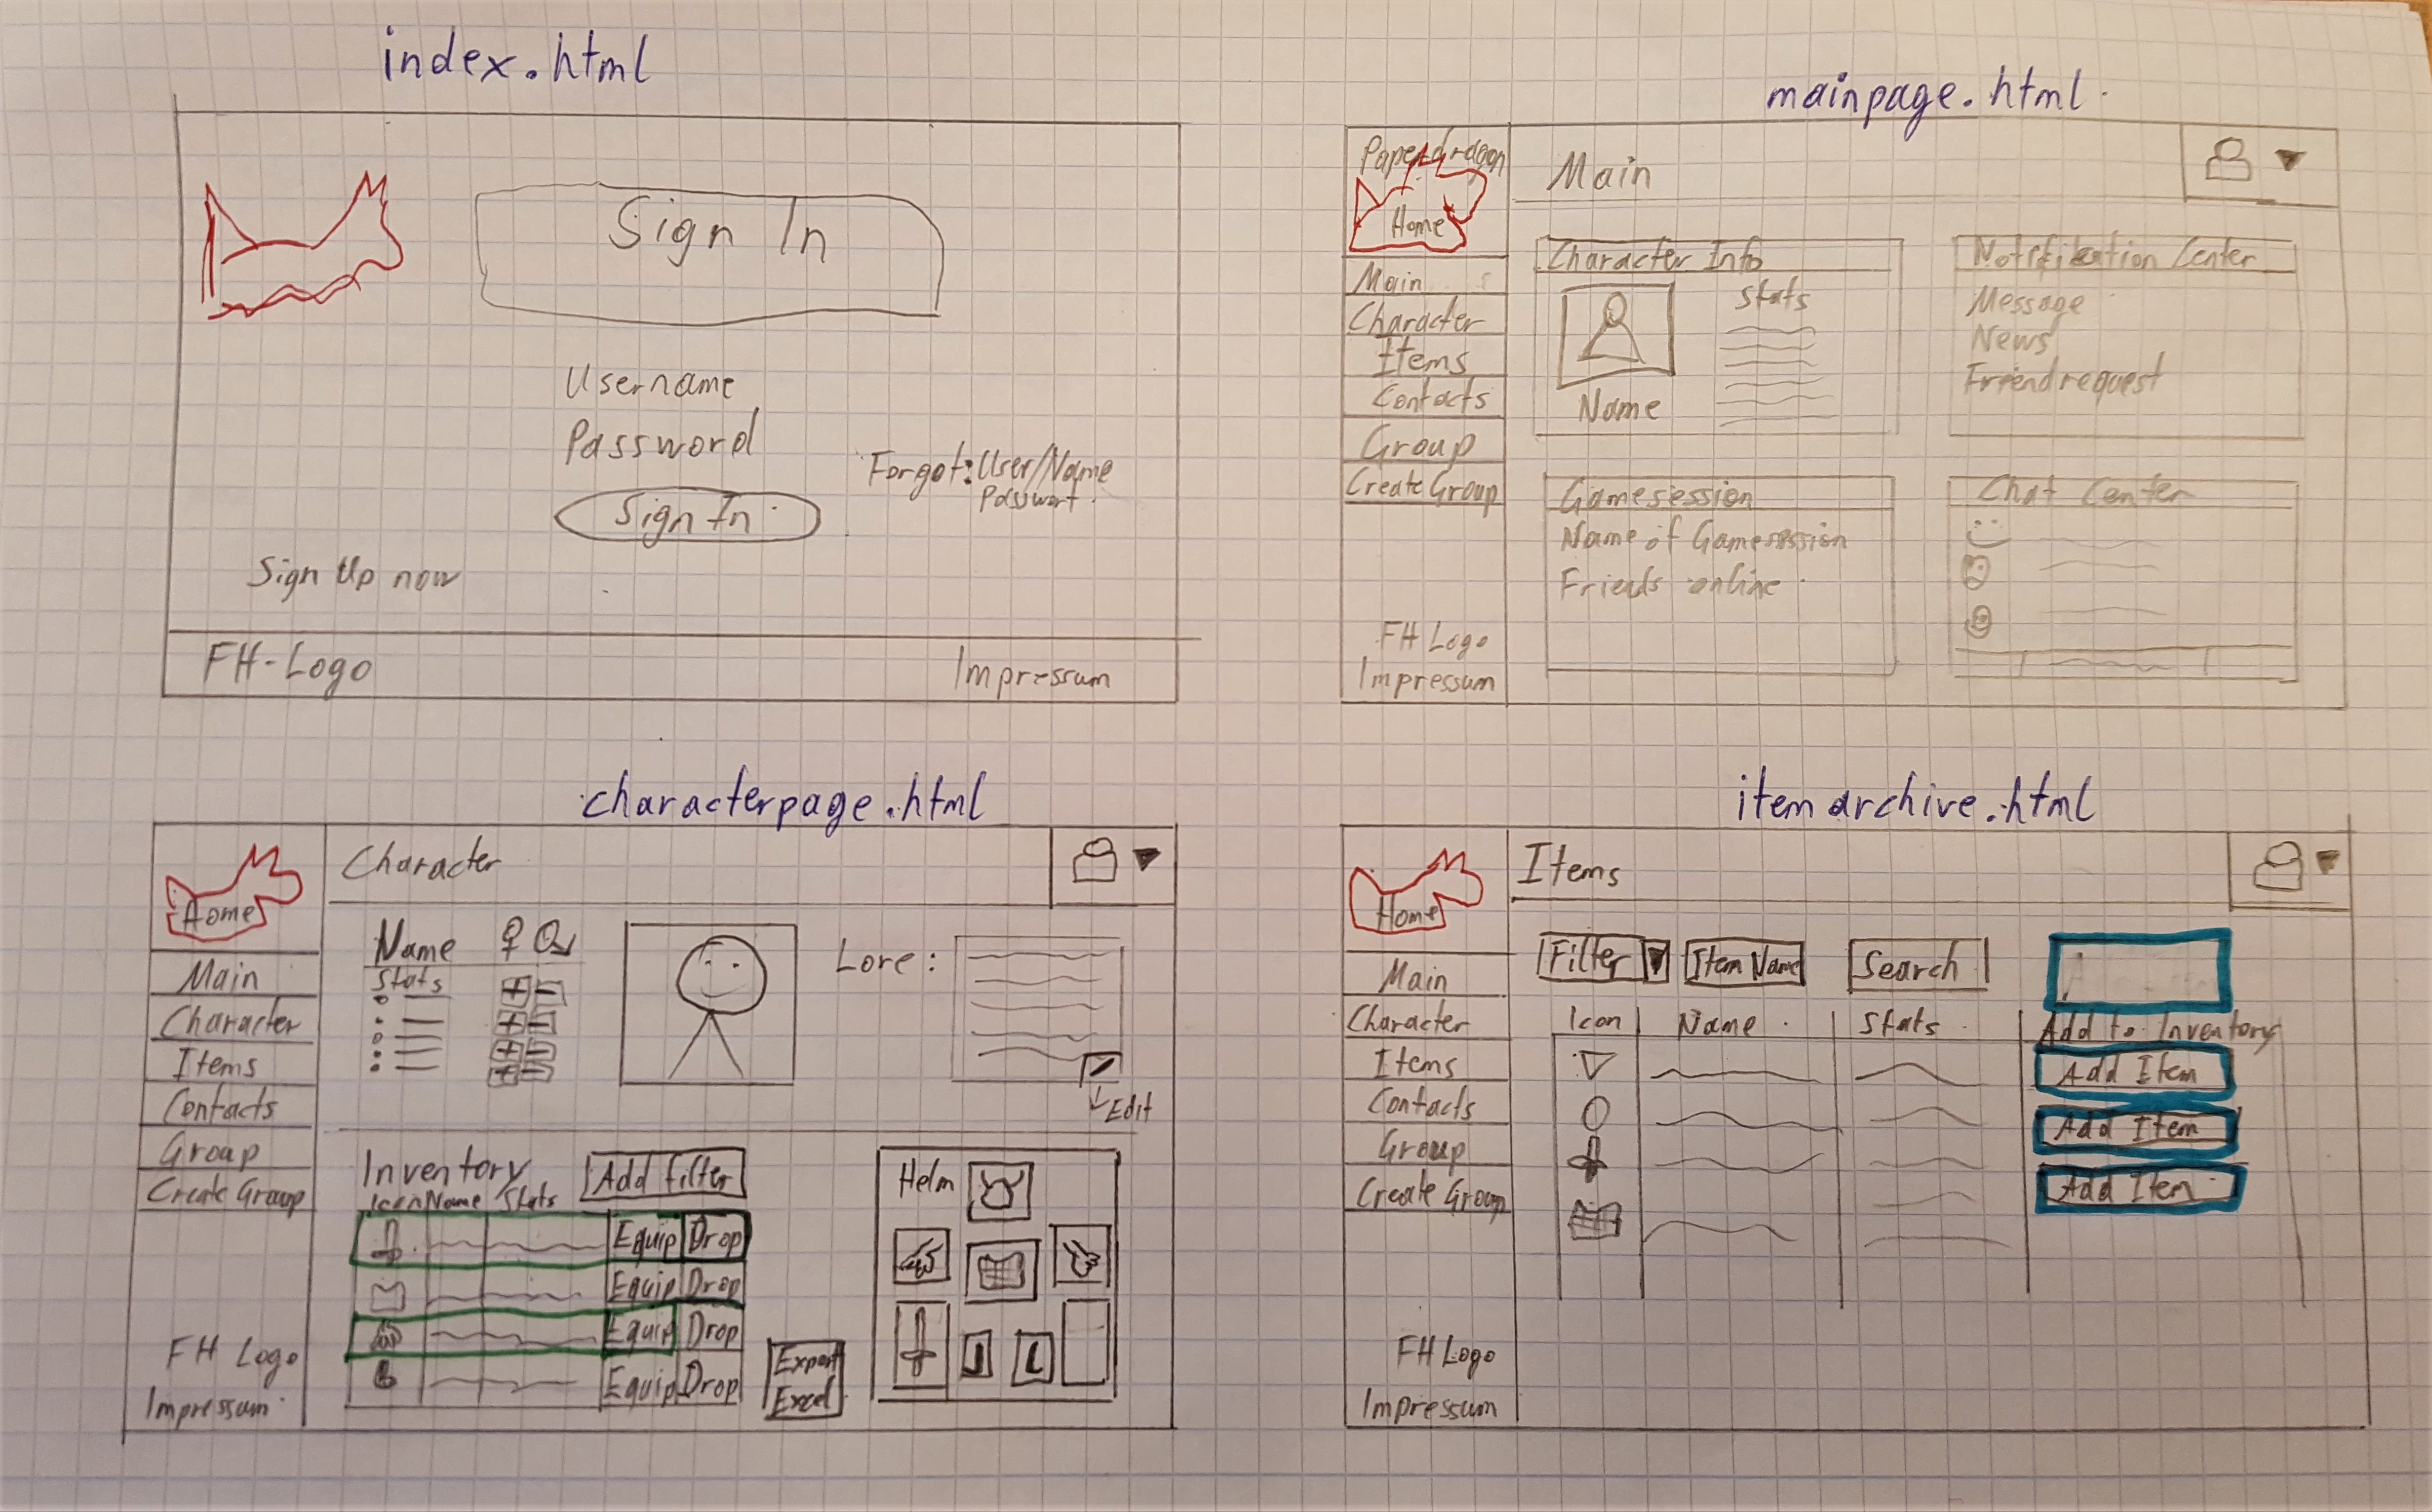 index.html
Sign In
Username
Password
Forgot: User/Name
Passwort
Sign In
Sign Up now
FH-Logo
Impressum
mainpage.html
Paperdragon
Home
Main
Character
Items
Contacts
Group
Create Group
FH Logo
Impressum
Main
Character Info
Stats
Name
Notifikation Center
Message
News
Friendrequest
Gamesession
Name of Gamesession
Friends online
Chat Center
characterpage.html
Home
Main
Character
Items
Contacts
Group
Create Group
FH Logo
Impressum
Character
Name
Stats
Lore:
Edit
Inventory
Add Filter
Icon Name Stats
Equip Drop
Equip Drop
Equip Drop
Equip Drop
Export
Excel
Helm
itemarchive.html
Home
Main
Character
Items
Contacts
Group
Create Group
FH Logo
Impressum
Items
Filter Item Name Search
Icon Name Stats Add to Inventory
Add Item
Add Item
Add Item